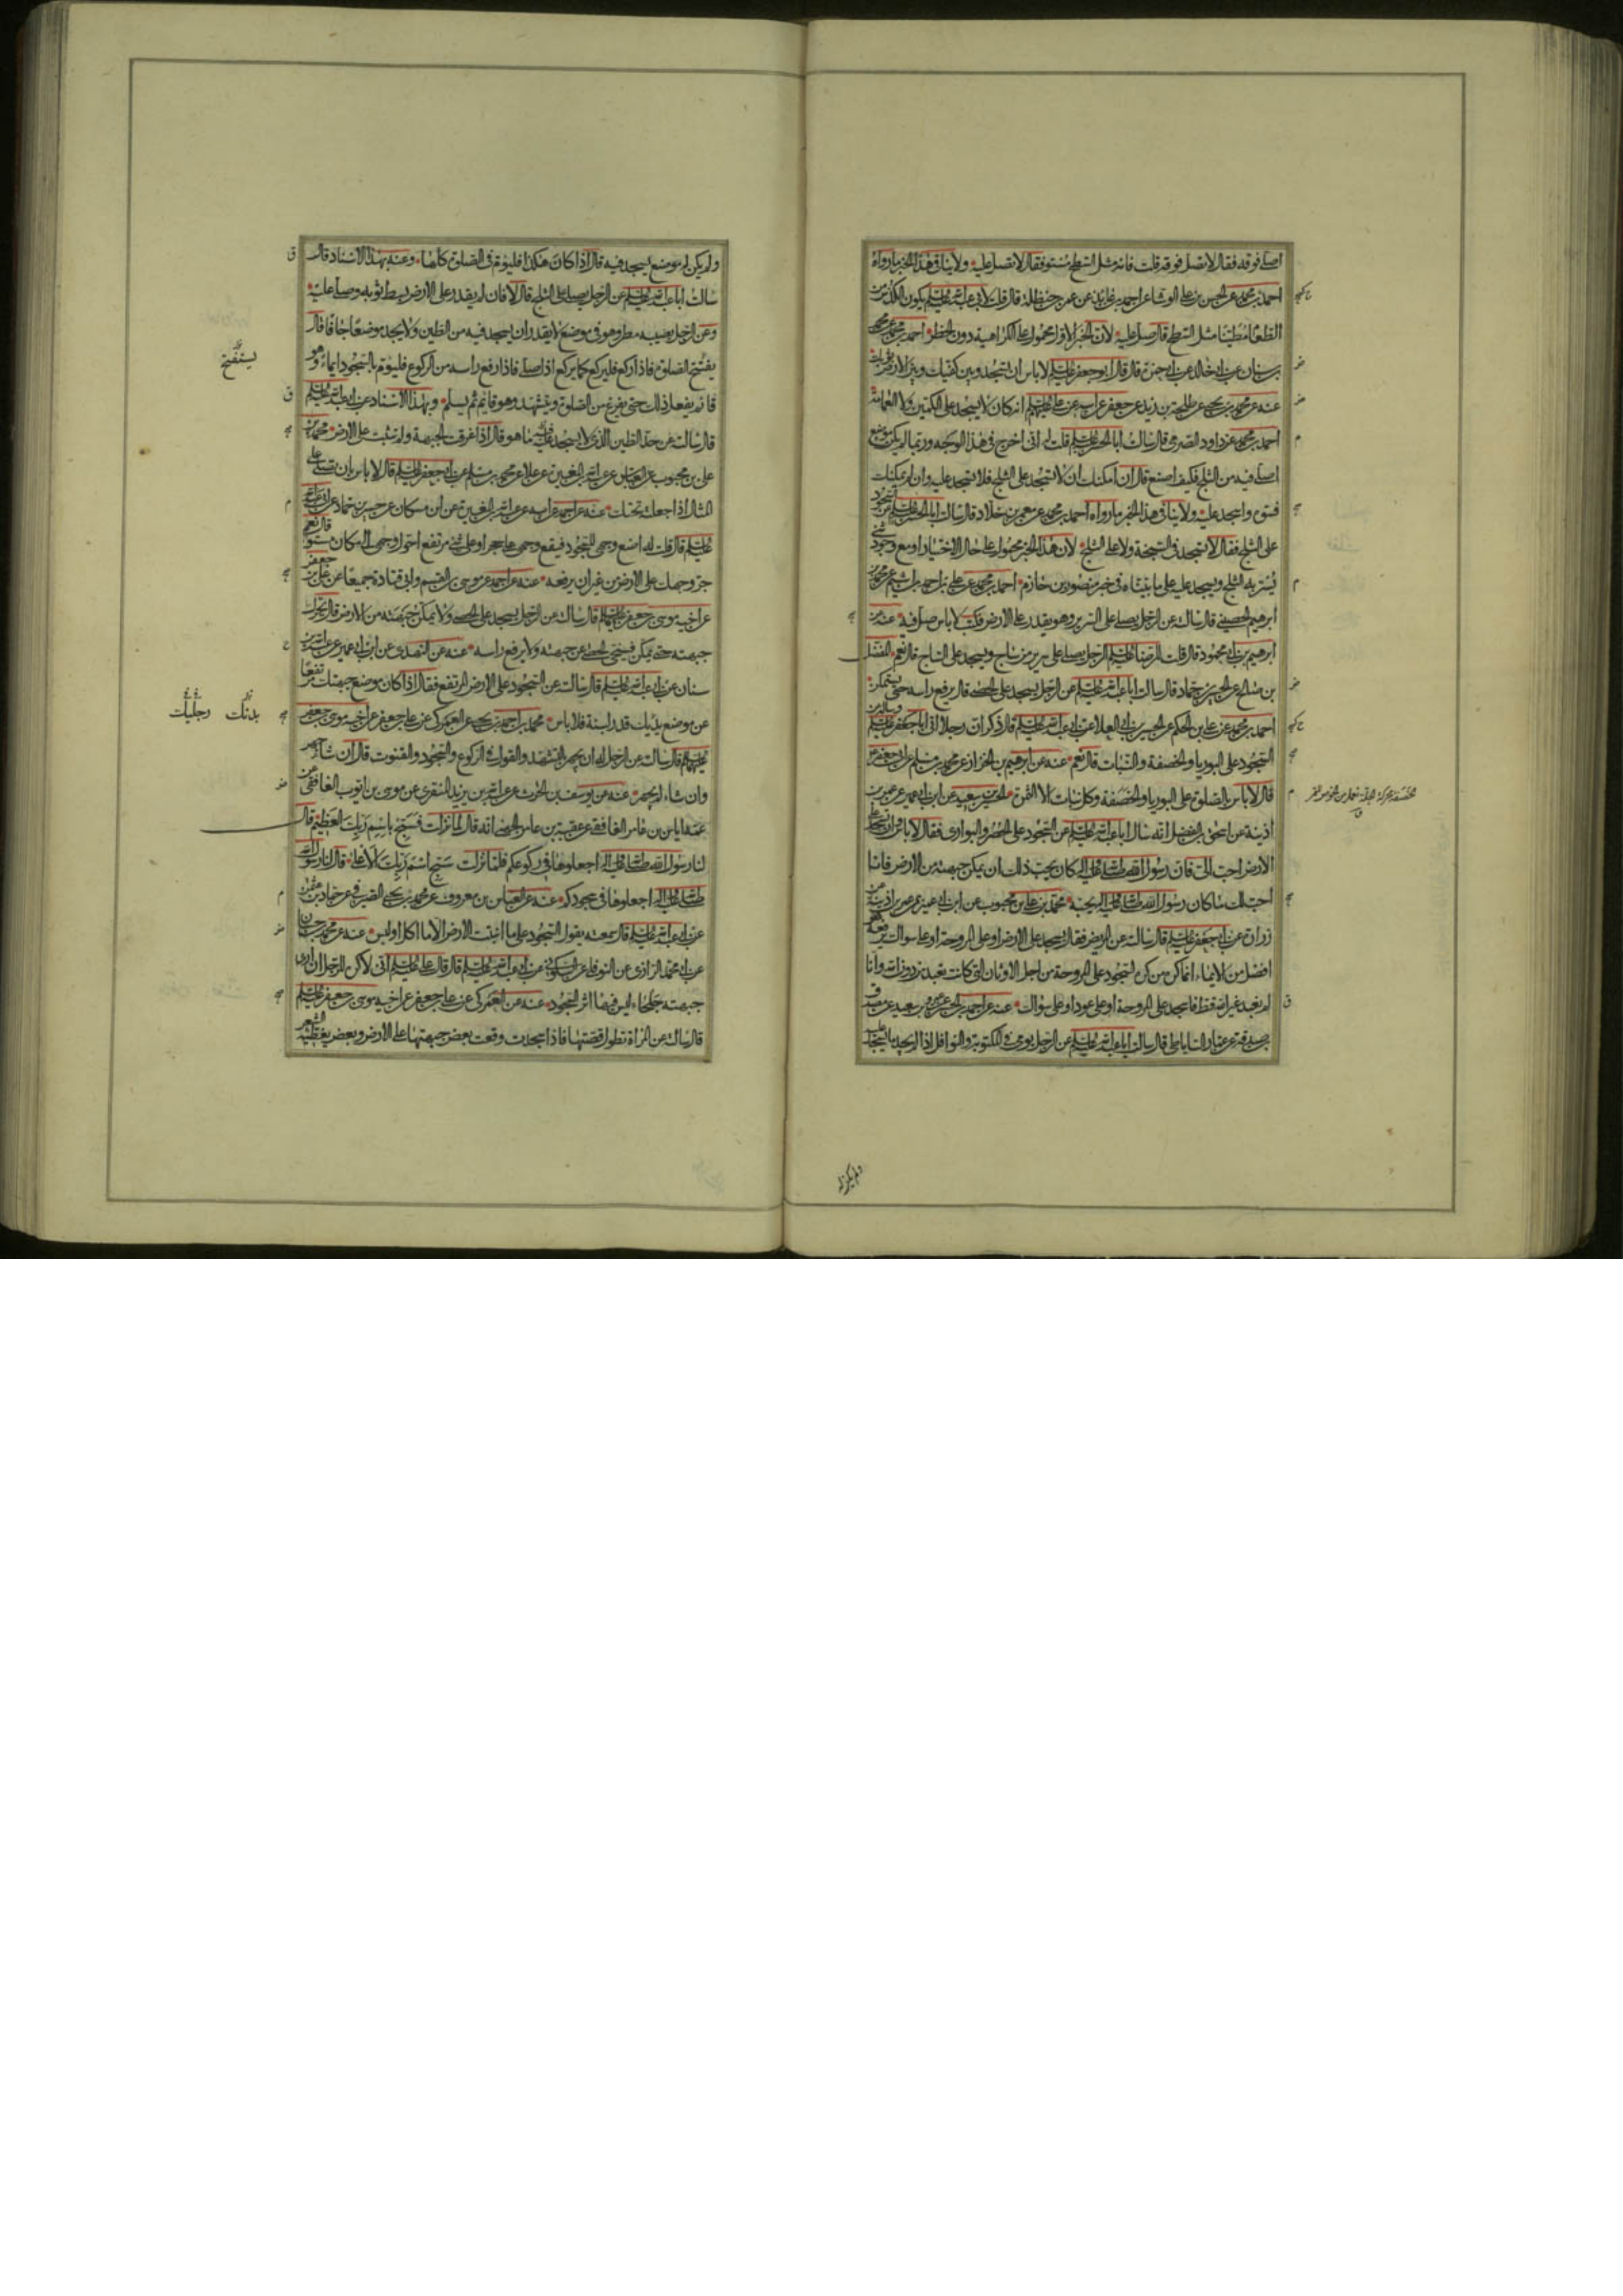 اصلى فوقه فقال لا تصل فوقه قلت فانه مثل السطح مستو فقال لا تصل عليه ولا ينافى هذا الخبر ما رواه
احمد بن محمد عن الحسن بن على الوشا عن احمد بن عائذ عن عمر بن حنظلة قال قلت لابى عبد الله عليه السلم يكون الكدس من
الطعام مطينا مثل السطح قال صل عليه لان الخبر الاول محمول على الكراهية دون الحظر احمد بن محمد عن محمد
بن سنان عن ابى خالد عن ابى حمزة قال قال ابو جعفر عليه السلم لا باس ان تسجد وبين كفيك وبين الارض ثوبك
عنه عن محمد بن يحيى عن طلحة بن زيد عن جعفر عن ابيه عن على عليهم السلم انه كان لا يسجد على الكمين ولا العمامة
احمد بن محمد عن داود الصرمى قال سالت ابا الحسن عليه السلم قلت له انى اخرج فى هذا الوجه وربما لم يكن موضع
اصلى فيه من الثلج فكيف اصنع قال ان امكنك ان لا تسجد على الثلج فلا تسجد عليه وان لم يمكنك
فسوه واسجد عليه ولا ينافى هذا الخبر ما رواه احمد بن محمد عن معمر بن خلاد قال سالت ابا الحسن عليه السلم عن السجود
على الثلج فقال لا تسجد فى السبخة ولا على الثلج لان هذا الخبر محمول على حال الاختيار او مع وجود شىء
يستر به الثلج ويسجد عليه على ما بيناه فى خبر منصور بن حازم احمد بن محمد عن على بن احمد بن اشيم عن محمد بن
ابرهيم الحصينى قال سالته عن الرجل يصلى على السرير وهو يقدر على الارض فكتب لا باس صل فيه عنه عن
ابرهيم بن ابى محمود قال قلت للرضا عليه السلم الرجل يصلى على سرير من ساج ويسجد على الساج قال نعم المفضل
بن صالح عن الحسين بن حماد قال سالت ابا عبد الله عليه السلم عن الرجل يسجد على الحصى قال يرفع راسه حتى يستمكن
احمد بن محمد عن على بن الحكم عن الحسين بن ابى العلا عن ابى عبد الله عليه السلم قال ذكر ان رجلا اتى ابا جعفر عليه السلم وساله عن
السجود على البوريا والخصفة والنبات قال نعم عنه عن ابرهيم بن الخزاز عن محمد بن مسلم عن ابى جعفر عليه السلم
قال لا باس بالصلوة على البوريا والخصفة وكل نبات الا الثمرة الحسين بن سعيد عن ابن ابى عمير عن عمر بن
اذينة عن اسحق بن الفضل انه سال ابا عبد الله عليه السلم عن السجود على الحصر والبوارى فقال لا باس وان تسجد على
الارض احب الى فان رسول الله صلى الله عليه واله كان يحب ذلك ان يمكن جبهته من الارض فانا
احب لك ما كان رسول الله صلى الله عليه واله يحبه محمد بن على بن محبوب عن ابن ابى عمير عن عمر بن اذينة عن
زرارة عن ابى جعفر عليه السلم قال سالته عن المريض فقال يسجد على الارض او على المروحة او على سواك يرفعه هو
افضل من الايماء انما كره من كره السجود على المروحة من اجل الاوثان التى كانت تعبد من دون الله وانا
لم نعبد غير الله قط فاسجد على المروحة او على عود او على سواك عنه عن احمد بن الحسن عن عمرو بن سعيد عن مصدق
بن صدقة عن عمار الساباطى قال سالت ابا عبد الله عليه السلم عن الرجل يومى فى المكتوبة والنوافل اذا لم يجد ما يسجد عليه
ولم يكن له
ولم يكن له موضع يسجد فيه قال اذا كان هكذا فليؤم فى الصلوة كلها وعنه بهذا الاسناد قال
سالت ابا عبد الله عليه السلم عن الرجل يصلى على الثلج قال لا فان لم يقدر على الارض بسط ثوبه وصلى عليه
وعن الرجل يصيبه مطر وهو فى موضع لا يقدر ان يسجد فيه من الطين ولا يجد موضعا جافا قال
يفتتح الصلوة فاذا ركع فليركع كما يركع اذا صلى فاذا رفع راسه من الركوع فليؤم بالسجود ايماء وهو
قائم يفعل ذلك حتى يفرغ من الصلوة ويتشهد وهو قائم ثم يسلم وبهذا الاسناد عن ابى عبد الله عليه السلم
قال سالته عن حد الطين الذى لا يسجد عليه ما هو قال اذا غرقت الجبهة ولم تثبت على الارض محمد بن
على بن محبوب عن العباس عن عبد الله بن المغيرة عن علاء عن محمد بن مسلم عن ابى جعفر عليه السلم قال لا باس بان تصلى على
المثال اذا جعلته تحتك عنه عن احمد عن ابيه عن عبد الله بن المغيرة عن ابن مسكان عن حسين بن حماد عن ابى عبد الله
عليه السلم قال قلت له اضع وجهى للسجود فيقع وجهى على حجر او على شىء مرتفع احول وجهى الى مكان مستو قال نعم
جر وجهك على الارض من غير ان ترفعه عنه عن احمد عن موسى بن القسم وابى قتادة جميعا عن على بن جعفر
عن اخيه موسى بن جعفر عليه السلم قال سالته عن الرجل يسجد على الحصى ولا يمكن جبهته من الارض قال يحرك
جبهته حتى يمكن فينحى الحصى عن جبهته ولا يرفع راسه عنه عن النهدى عن ابن ابى عمير عن عبد الله بن
سنان عن ابى عبد الله عليه السلم قال سالته عن السجود على الارض المرتفع فقال اذا كان موضع جبهتك مرتفعا
عن موضع يديك قدر لبنة فلا باس محمد بن احمد بن يحيى عن العمركى عن على بن جعفر عن اخيه موسى بن جعفر
عليهم السلم قال سالته عن الرجل له ان يجهر بالتشهد والقول فى الركوع والسجود والقنوت قال ان شاء جهر
وان شاء لم يجهر عنه عن يوسف بن الحرث عن عبد الله بن يزيد المنقرى عن موسى بن ايوب الغافقى عن
عمه اياس بن عامر الغافقى عن عقبة بن عامر الجهنى انه قال لما نزلت فسبح باسم ربك العظيم قال
لنا رسول الله صلى الله عليه واله اجعلوها فى ركوعكم فلما نزلت سبح اسم ربك الاعلى قال لنا رسول الله
صلى الله عليه واله اجعلوها فى سجودكم عنه عن العباس بن معروف عن محمد بن يحيى الصيرفى عن حماد بن عثمن
عن ابى عبد الله عليه السلم قال سمعته يقول السجود على ما انبتت الارض الا ما اكل او لبس عنه عن محمد بن حسان
عن ابى محمد الرازى عن النوفلى عن السكونى عن ابى عبد الله عليه السلم قال قال على عليه السلم انى لاكره للرجل ان ارى
جبهته جلحاء ليس فيها اثر السجود عنه عن العمركى عن على بن جعفر عن اخيه موسى بن جعفر عليه السلم
قال سالته عن المراة تطول قصتها فاذا سجدت وقعت بعض جبهتها على الارض وبعض يغطيه الشعر
يستفتح
بدنك رجليك